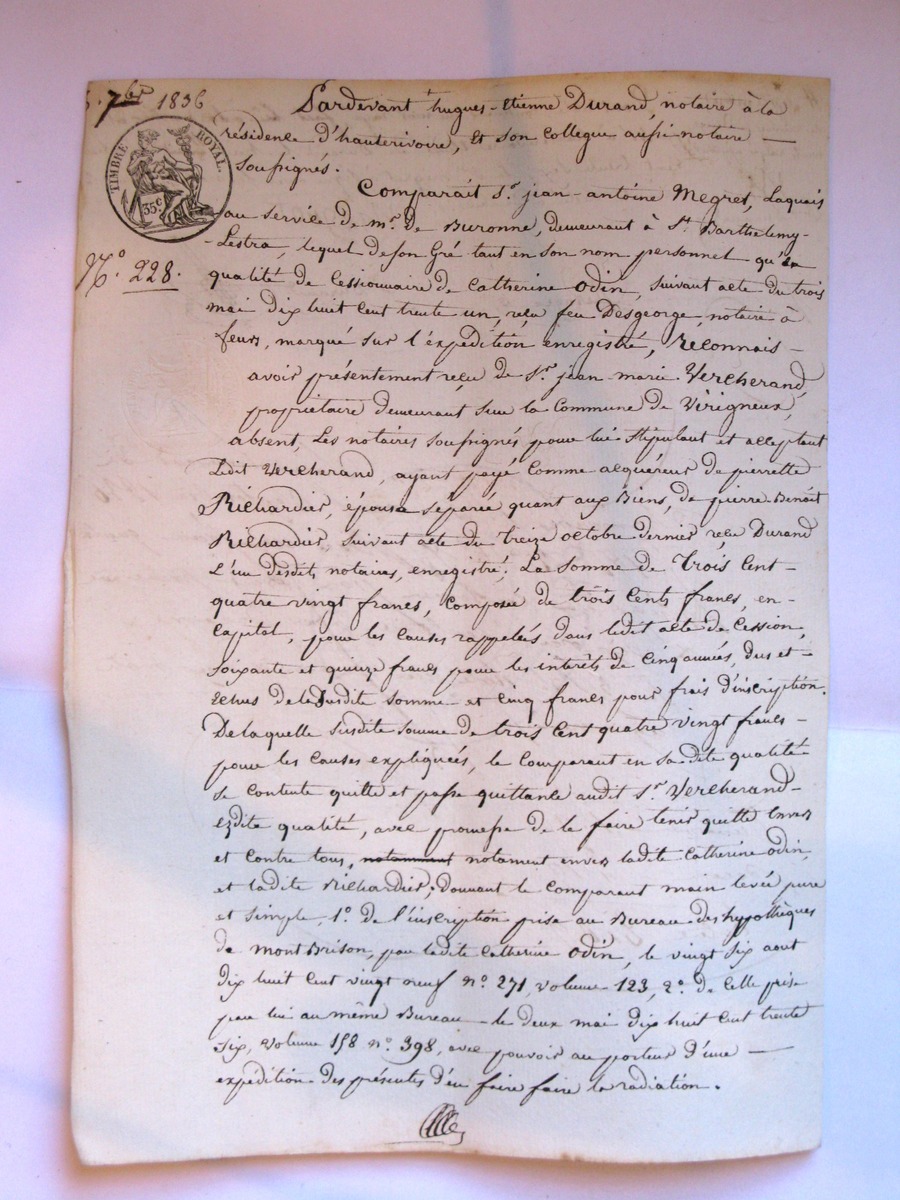 7bre 1836
TIMBRE ROYAL.
35c
No. 228.
Pardevant hugues-Etienne Durand, notaire à la
résidence d'hauterivoire, Et son collegue aussi notaire —
soussignés.
Comparait Sr. jean-antoine Megret, Laquais
au service de mr. de Buronne, demeurant à St. Barthelemy-
-Lestra, lequel de son Gré tant en son nom personnel qu'en
qualité de Cessionnaire de Catherine Odin, suivant acte du trois
mai dix huit cent trente un, reçu feu Desgeorge, notaire à
feurs, marqué sur l'expédition enregistré, Reconnais -
avoir présentement reçu de Sr. jean-marie Vercherand,
propriétaire demeurant sur la Commune de Virigneux,
absent, Les notaires soussignés pour lui stipulant et acceptant
Ledit Vercherand, ayant payé Comme acquéreur de pierrette
Richardier, épouse séparée quant aux Biens, de pierre Benoît
Richardier, suivant acte du Treize octobre dernier reçu Durand
L'un desdits notaires, enregistré; La somme de Trois Cent-
quatre vingt francs, Composée de trois Cents francs, en-
Capital, pour les causes rappelées dans ledit acte de Cession,
soixante et quinze francs pour les intérêts de Cinq années, dus et-
échus de la Susdite somme et cinq francs pour frais d'inscription.
De laquelle Susdite somme de trois Cent quatre vingt francs -
pour les Causes expliquées, le Comparant en sa dite qualité
se Contente quitte et passe quittance audit Sr. Vercherand-
esdite qualité, avec promesse de le faire tenir quitte Envers
et Contre tous, notamment notament envers ladite Catherine Odin,
et ladite Richardier; Donnant le Comparant main levée pure
et simple, 1o. de l'inscription prise au Bureau des hypothèques
de montBrison, par ladite Catherine Odin, le vingt six aout
dix huit Cent vingt neuf no. 271, volume 123, 2o. de Celle prise
par lui au même Bureau le deux mai dix huit Cent trente
six, volume 158 no. 398, avec pouvoir au porteur d'une —
expedition des présentes d'en faire faire la radiation.